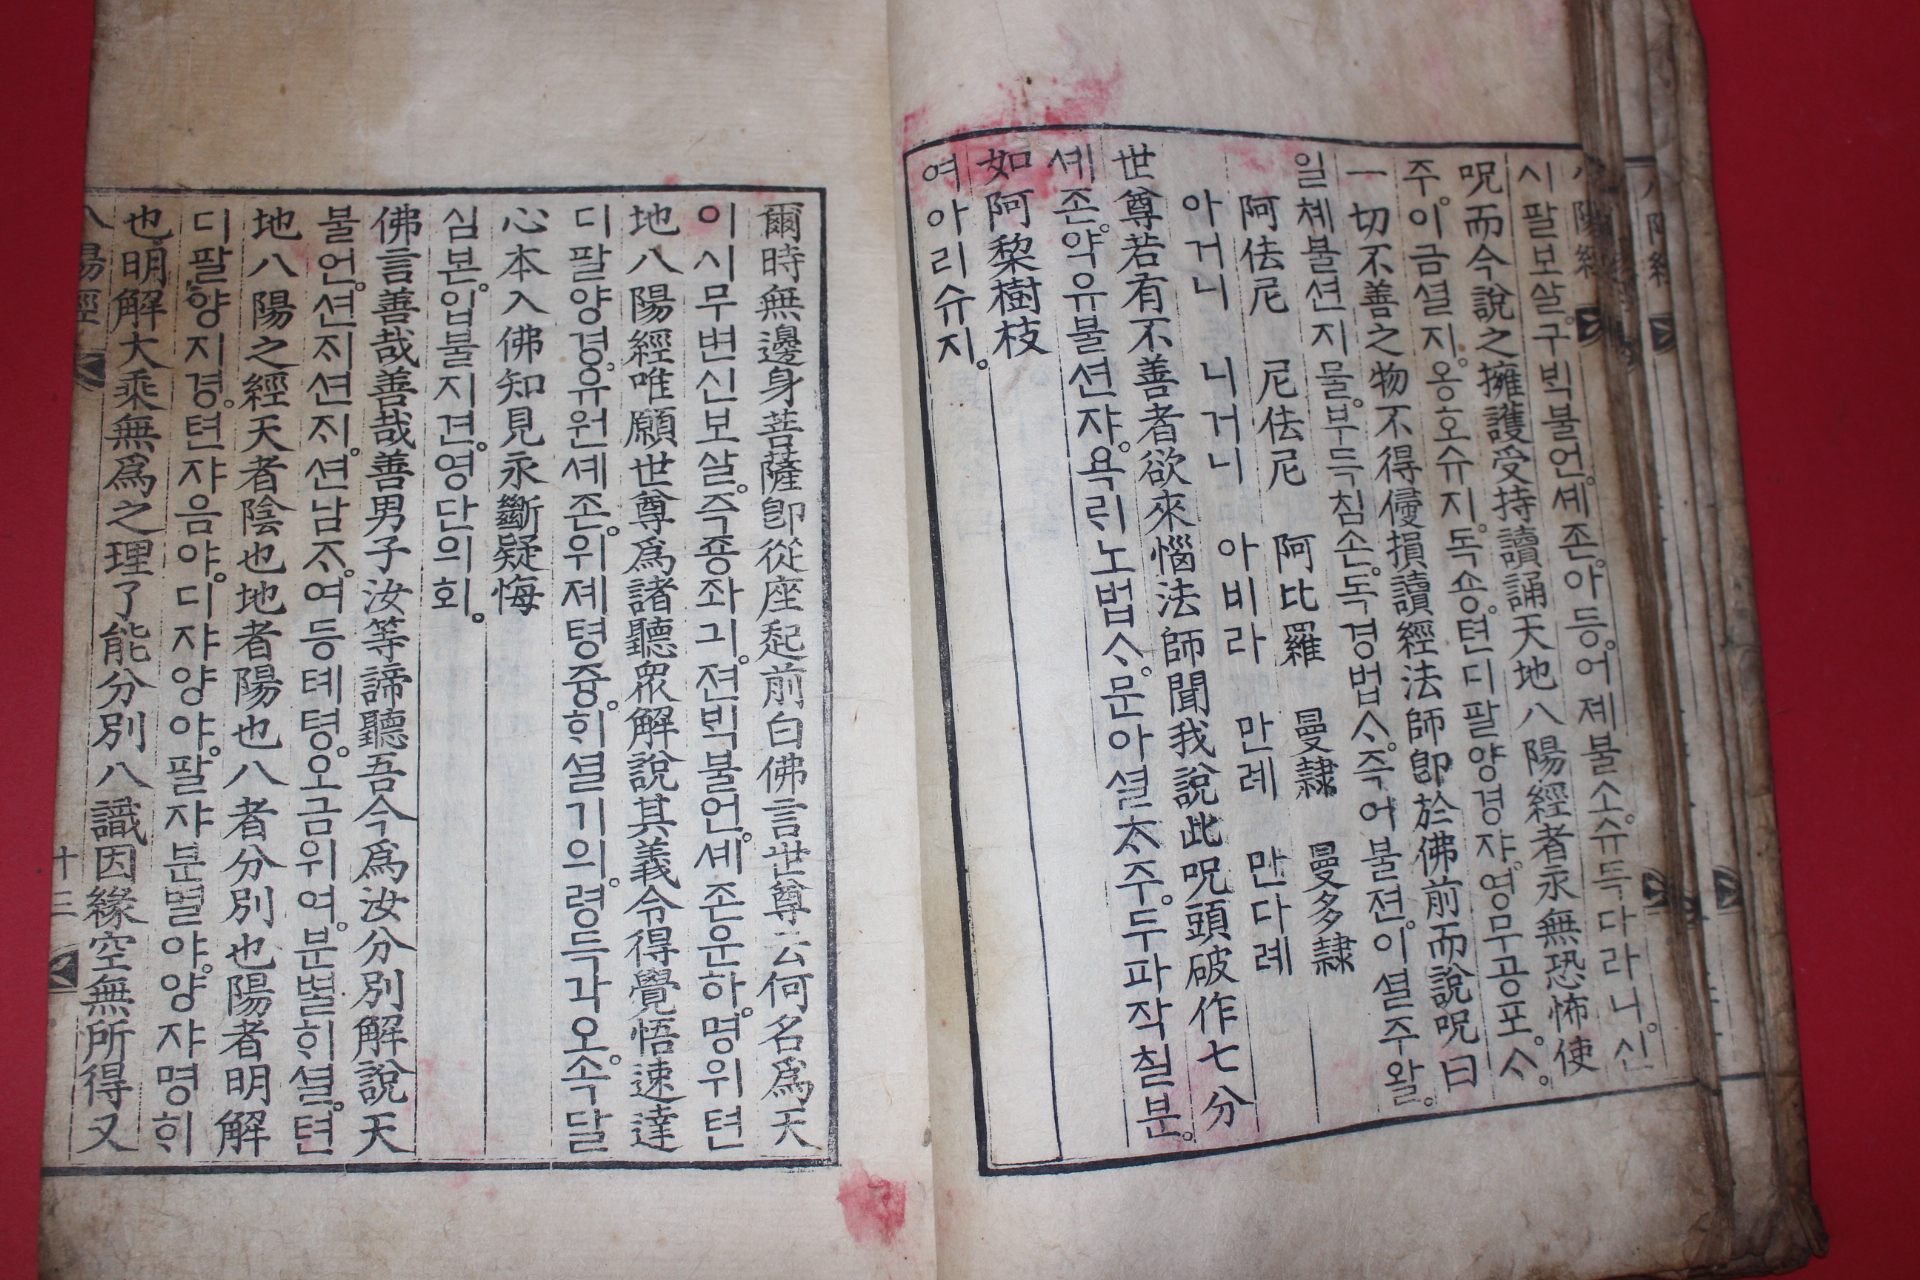 시팔보살구ᄇᆡᆨ불언셰존아등어졔불소슈득다라니신
呪而今說之擁護受持讀誦天地八陽經者永無恐怖使
주이금셜지옹호슈지독숑텬디팔양경쟈영무공포ᄉᆞ
一切不善之物不得侵損讀經法師卽於佛前而說呪曰
일쳬불션지물부득침손독경법ᄉᆞ즉어불젼이셜주왈
阿佉尼 尼佉尼 阿比羅 曼隷 曼多隷
아거니 니거니 아비라 만례 만다례
世尊若有不善者欲來惱法師聞我說此呪頭破作七分
셰존약유불션쟈욕ᄅᆡ노법ᄉᆞ문아셜ᄎᆞ주두파작칠분
如阿棃樹枝
여아리슈지
爾時無邊身菩薩卽從座起前白佛言世尊云何名爲天
이시무변신보살즉죵좌긔젼ᄇᆡᆨ불언셰존운하명위텬
地八陽經唯願世尊爲諸聽衆解說其義令得覺悟速達
디팔양경유원셰존위졔텽즁ᄒᆡ셜기의령득각오속달
心本入佛知見永斷疑悔
심본입불지견영단의회
佛言善哉善哉善男子汝等諦聽吾今爲汝分別解說天
불언션ᄌᆡ션ᄌᆡ션남ᄌᆞ여등톄텽오금위여분별ᄒᆡ셜텬
地八陽之經天者陰也地者陽也八者分別也陽者明解
디팔양지경텬쟈음야디쟈양야팔쟈분별야양쟈명ᄒᆡ
也明解大乘無爲之理了能分別八識因緣空無所得又
八陽經 十三